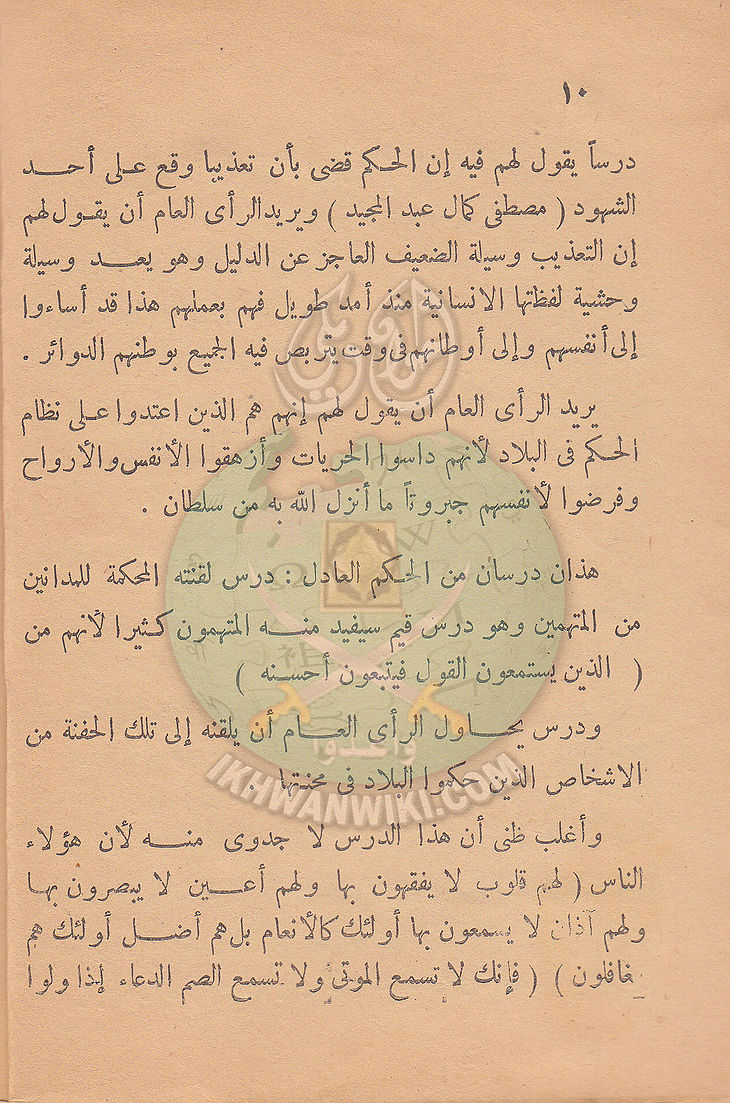 ١٠
درساً يقول لهم فيه إن الحكم قضى بأن تعذيبا وقع على أحد
الشهود ( مصطفى كمال عبد المجيد ) ويريد الرأى العام أن يقول لهم
إن التعذيب وسيلة الضعيف العاجز عن الدليل وهو يعد وسيلة
وحشية لفظتها الانسانية منذ أمد طويل فهم بعملهم هذا قد أساءوا
إلى أنفسهم وإلى أوطانهم فى وقت يتربص فيه الجميع بوطنهم الدوائر .
يريد الرأى العام أن يقول لهم إنهم هم الذين اعتدوا على نظام
الحكم فى البلاد لأنهم داسوا الحريات وأزهقوا الأنفس والأرواح
وفرضوا لأنفسهم جبروتاً ما أنزل الله به من سلطان .
هذان درسان من الحكم العادل : درس لقنته المحكمة للمدانين
من المتهمين وهو درس قيم سيفيد منه المتهمون كثيرا لأنهم من
( الذين يستمعون القول فيتبعون أحسنه )
ودرس يحاول الرأى العام أن يلقنه إلى تلك الحفنة من
الاشخاص الذين حكموا البلاد فى محنتها .
وأغلب ظنى أن هذا الدرس لا جدوى منه لأن هؤلاء
الناس ( لهم قلوب لا يفقهون بها ولهم أعين لا يبصرون بها
ولهم آذان لا يسمعون بها أولئك كالأنعام بل هم أضل أولئك هم
غافلون ) ( فإنك لا تسمع الموتى ولا تسمع الصم الدعاء إذا ولوا
وأعدوا
IKHWANWIKI.COM